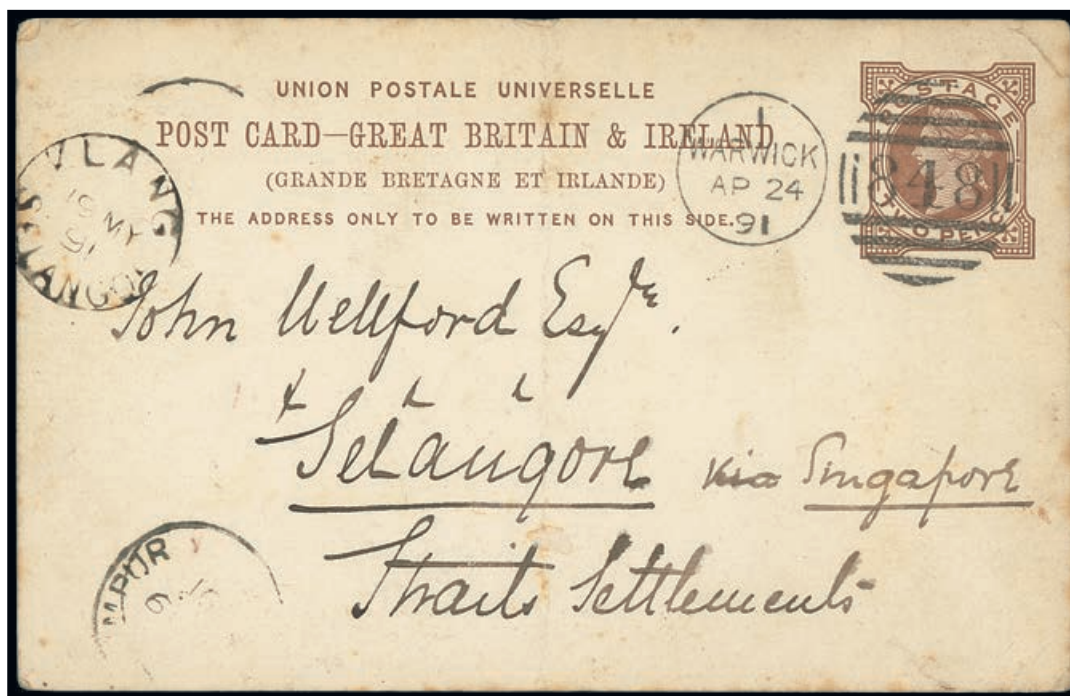 UNION POSTALE UNIVERSELLE
POST CARD—GREAT BRITAIN & IRELAND
(GRANDE BRETAGNE ET IRLANDE)
THE ADDRESS ONLY TO BE WRITTEN ON THIS SIDE.
POSTAGE
TWO PENCE
1
WARWICK
AP 24
91
848
KLANG
19 MY
91
SELANGOR
John Wellford Esqre.
Selangore via Singapore
Straits Settlements
MPUR